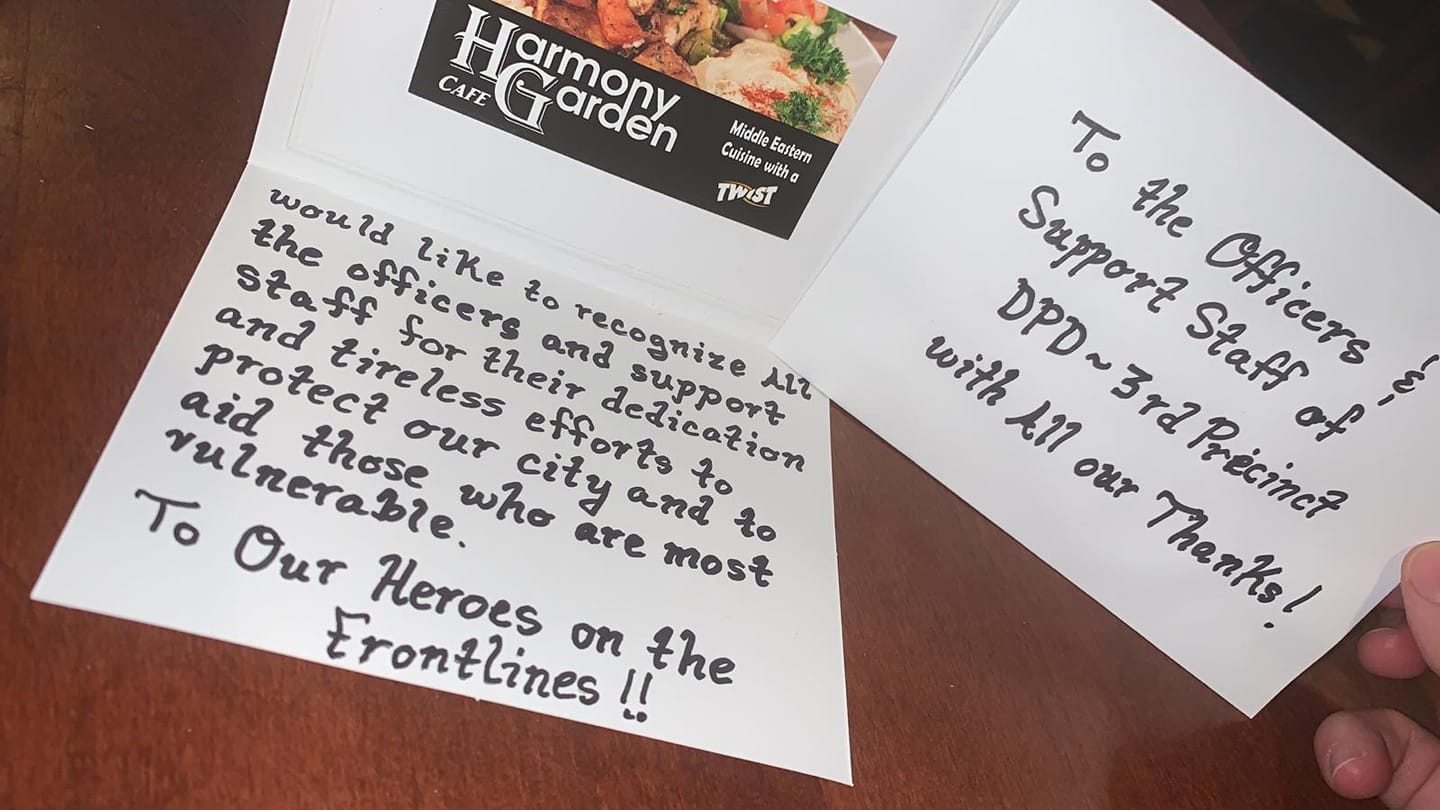 Harmony
Garden
CAFE
Middle Eastern
Cuisine with a
TWIST
would like to recognize All
the officers and support
staff for their dedication
and tireless efforts to
protect our city and to
aid those who are most
vulnerable.
To Our Heroes on the
Frontlines !!
To the Officers &
Support Staff of
DPD ~ 3rd Precinct
with All our Thanks!